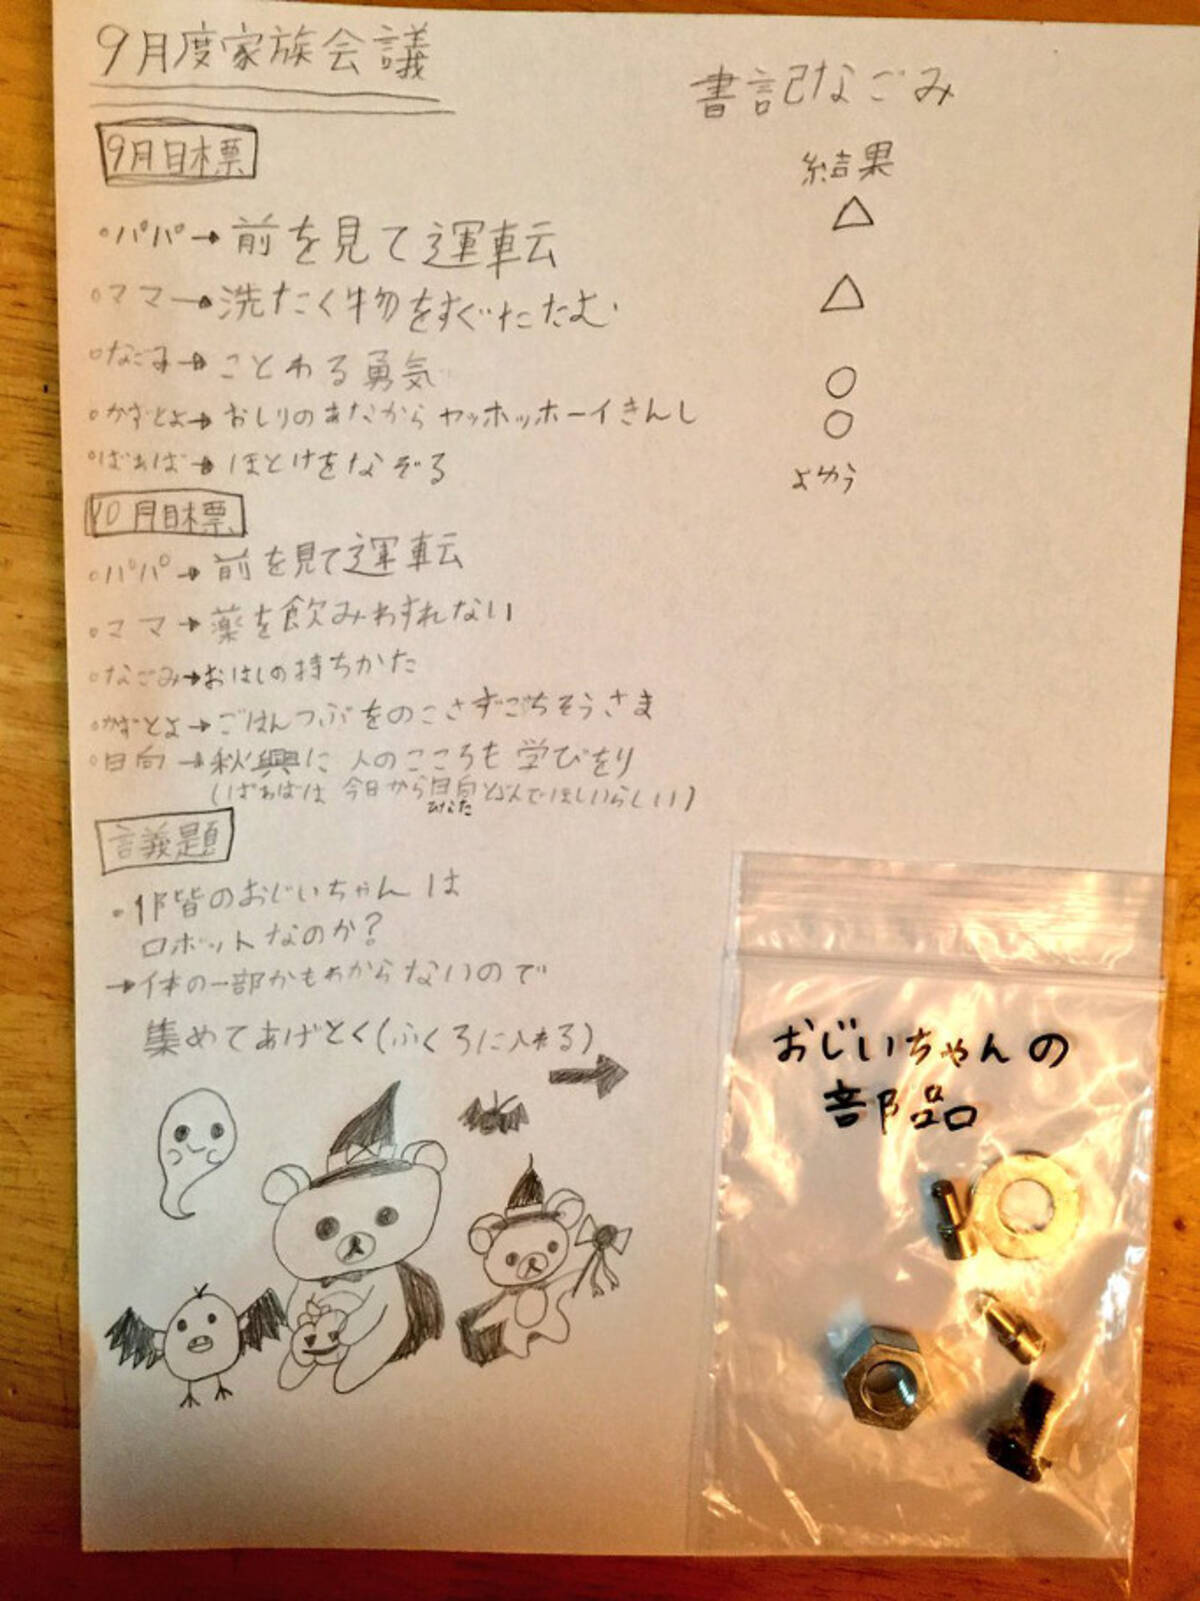 9月度家族会議
書記なごみ
9月目標
結果
・パパ→前を見て運転 △
・ママ→洗たく物をすぐたたむ △
・なごみ→ことわる勇気 ○
・かずとよ→おしりのあなからヤッホッホーイきんし ○
・ばぁば→ほとけをなぞる よゆう
10月目標
・パパ→前を見て運転
・ママ→薬を飲みわすれない
・なごみ→おはしの持ちかた
・かずとよ→ごはんつぶをのこさずごちそうさま
・日向→秋興に人のこころも学びをり
(ばぁばは今日から日向とよんでほしいらしい)
ひなた
議題
・皆のおじいちゃんは
ロボットなのか?
→体の一部かもわからないので
集めてあげとく(ふくろに入れる)
→
おじいちゃんの
部品